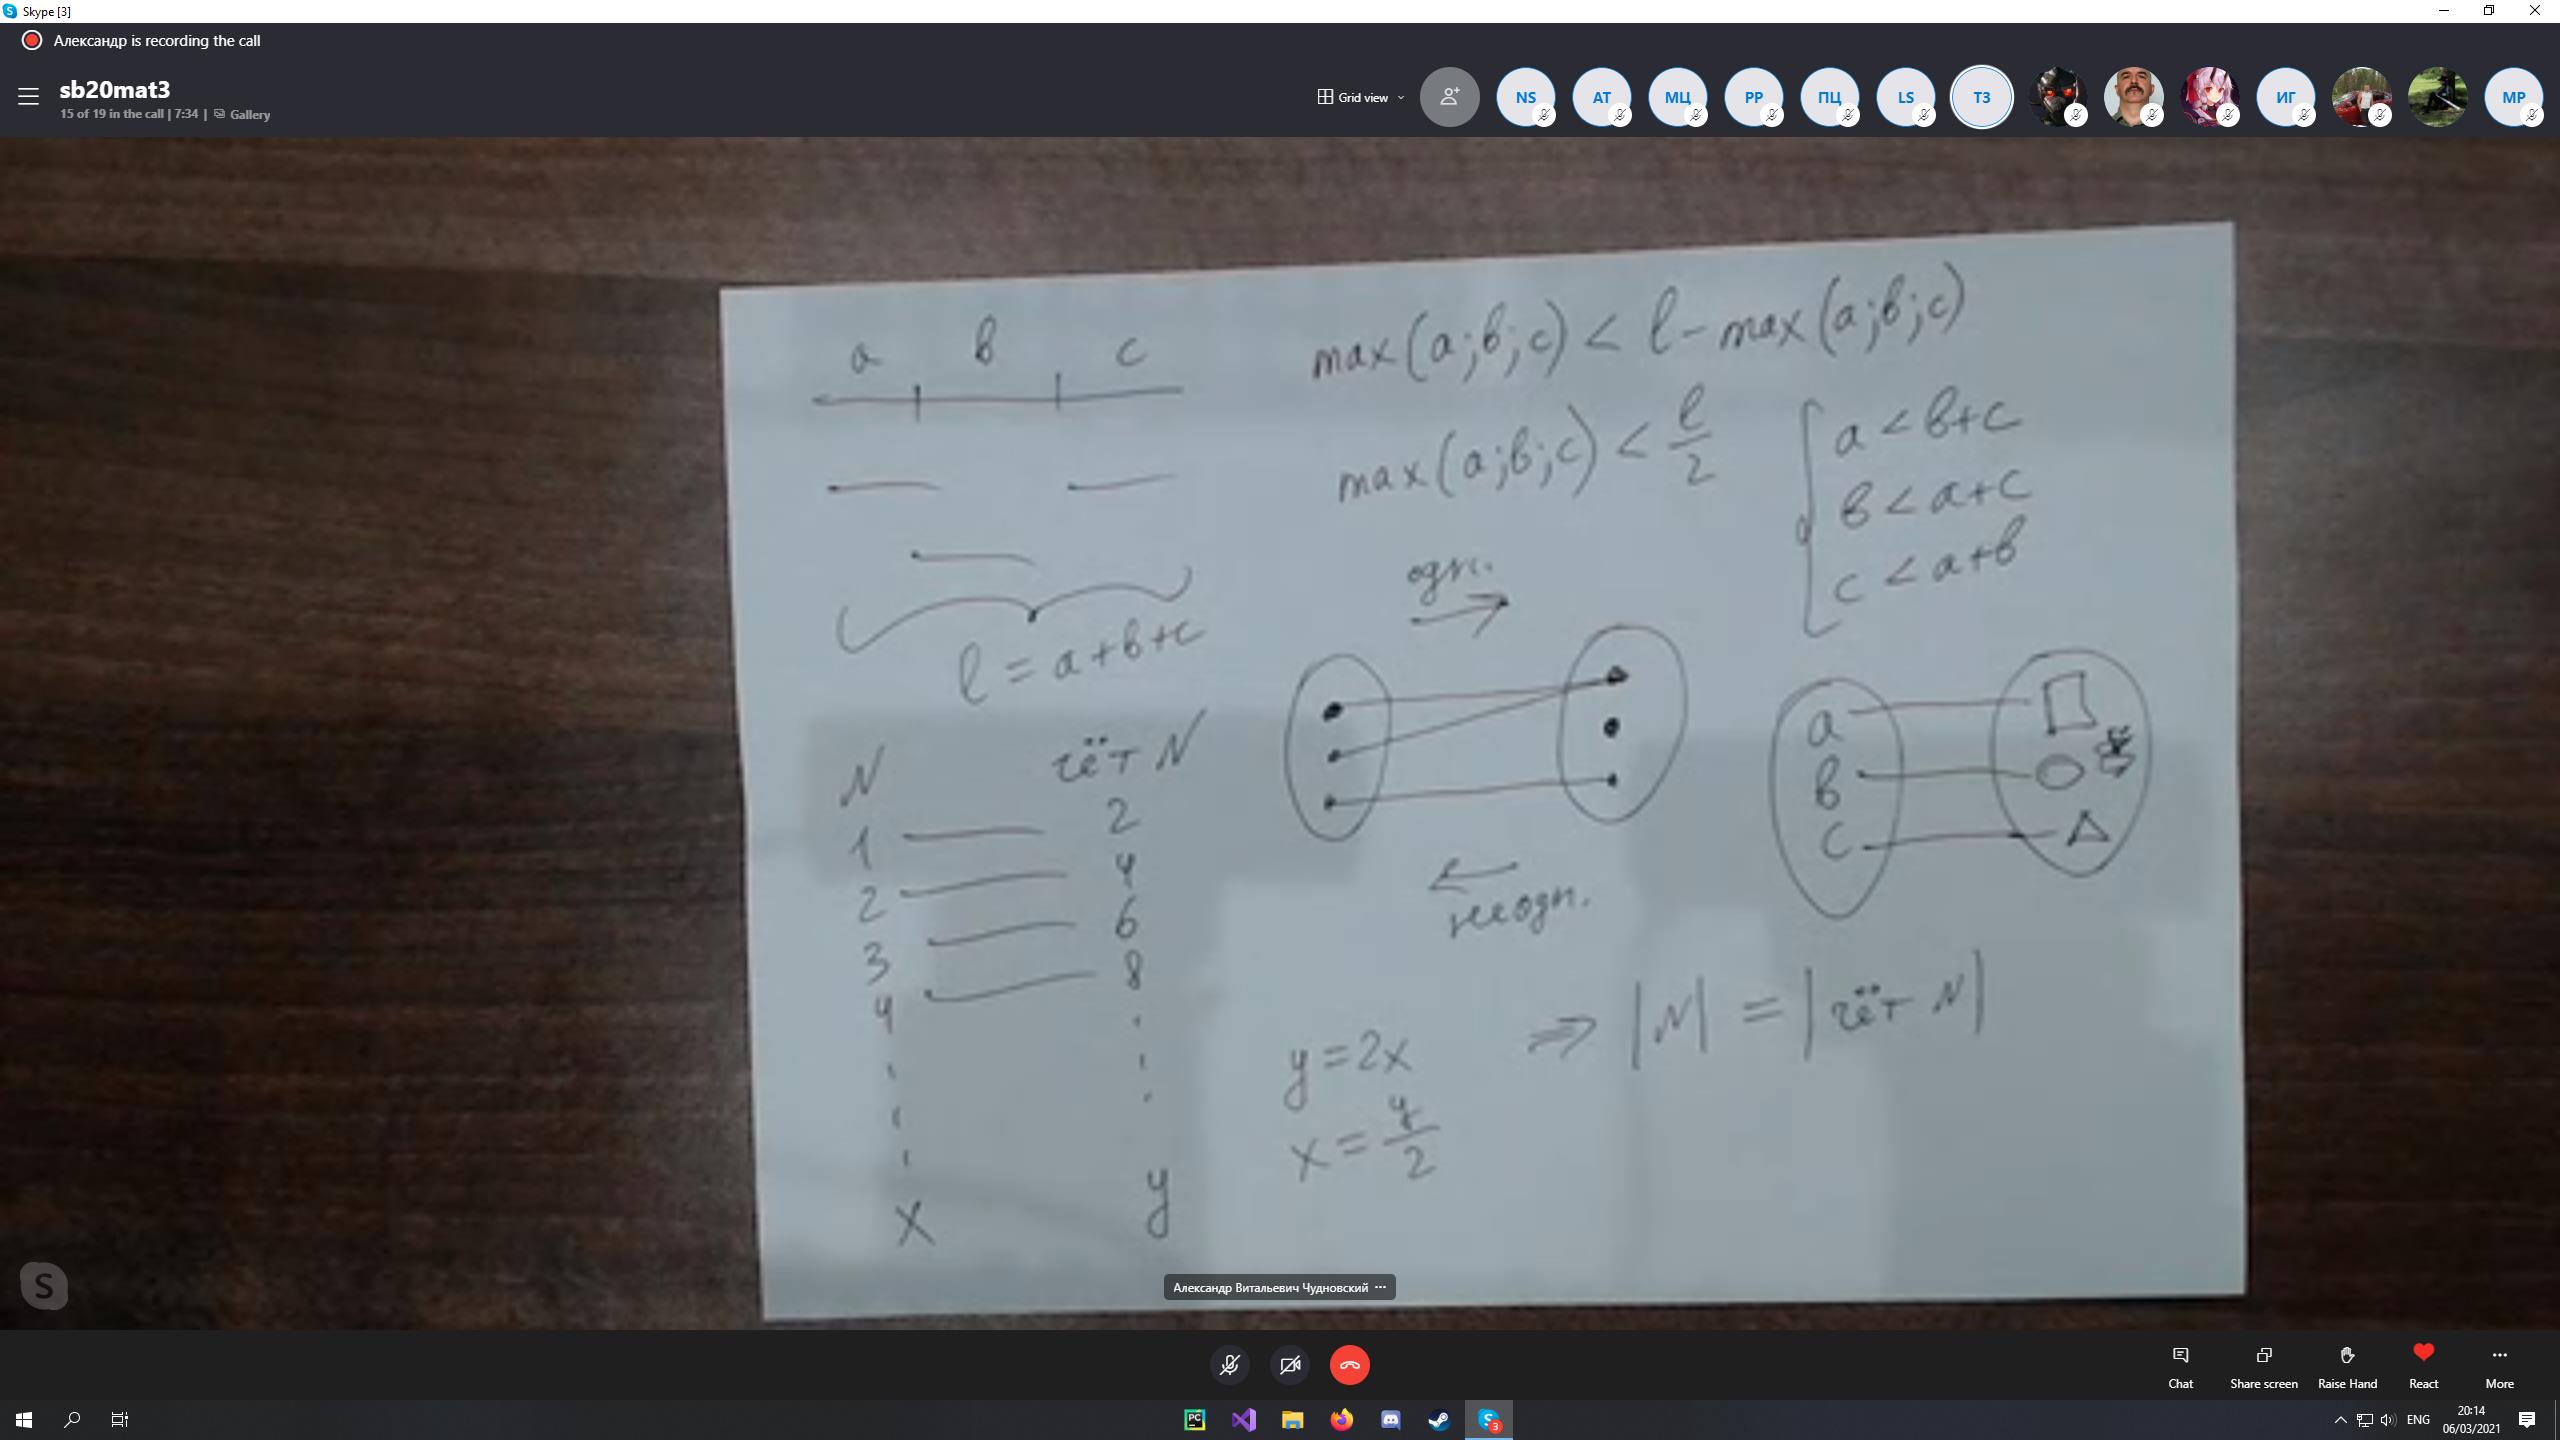 Skype [3]
Александр is recording the call
sb20mat3
15 of 19 in the call | 7:34 | Gallery
Grid view
NS
AT
МЦ
PP
ПЦ
LS
ТЗ
ИГ
MP
a в c
max(a;в;c) < l - max(a;в;c)
max(a;в;c) < l/2
a < в+c
в < a+c
c < a+в
l = a+в+c
одн.
неодн.
N чёт N
1 2
2 4
3 6
4 8
x y
a
в
c
y = 2x
x = y/2
⇒ |N| = |чёт N|
Александр Витальевич Чудновский
Chat
Share screen
Raise Hand
React
More
PC
S 3
ENG
20:14
06/03/2021